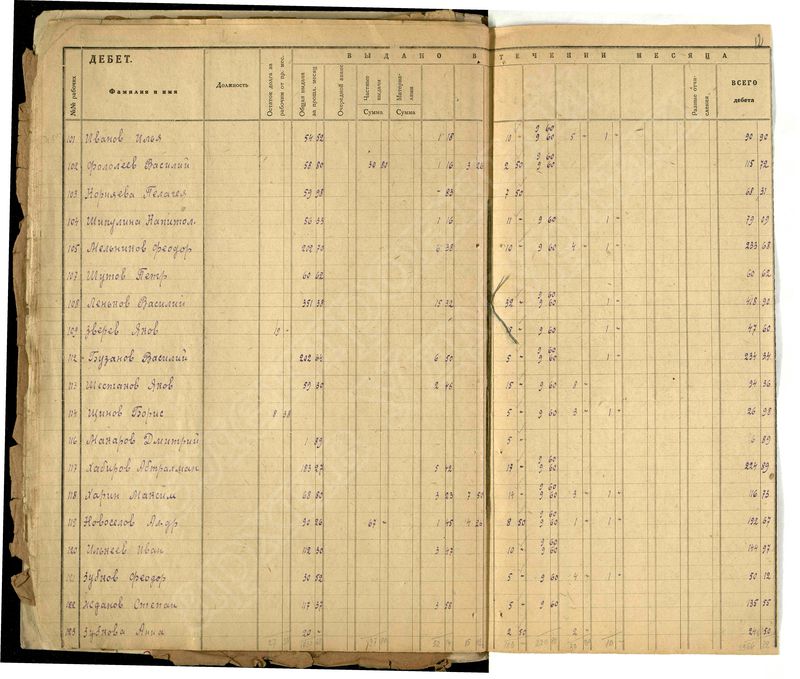 ДЕБЕТ.
ВЫДАНО В ТЕЧЕНИИ МЕСЯЦА
№№ рабочих
Фамилия и имя
Должность
Остаток долга за рабочим от пр. мес.
Общая выдача за прошл. месяц
Очередной аванс
Частные выдачи
Сумма
Материалами
Сумма
Разные отчисления
ВСЕГО дебета
101 Иванов Илья 54 52 1 18 10 - 9 60 9 60 5 - 1 - 90 90
102 Василий 58 80 30 80 1 16 3 26 2 50 9 60 9 60 115 72
103 Корняева Пелагея 59 98 - 83 7 50 68 31
104 Шикулина Капитол. 56 33 1 16 11 - 9 60 1 - 79 09
105 Мельников Феодор 202 70 6 38 10 - 9 60 4 - 1 - 233 68
107 Шутов Петр 60 62 60 62
108 Леньков Василий 351 38 15 32 32 - 9 60 9 60 1 - 418 90
109 Зверев Яков 10 - 9 60 1 - 47 60
112 Бузанов Василий 202 64 6 50 5 - 9 60 9 60 1 - 234 34
113 Шестаков Яков 59 30 2 46 15 - 9 60 8 - 94 36
114 Щинов Борис 8 38 5 - 9 60 3 - 1 - 26 98
116 Макаров Дмитрий 1 89 5 - 6 89
117 Хабиров Абтрахман 183 27 5 42 17 - 9 60 9 60 224 89
118 Харин Максим 68 80 3 23 7 50 14 - 9 60 9 60 3 - 1 - 116 73
119 Новоселов Ал-др 90 26 67 - 1 45 4 26 8 50 9 60 9 60 1 - 1 - 192 67
120 Илькеев Иван 112 30 3 47 10 - 9 60 9 60 144 97
121 Зубков Феодор 30 52 5 - 9 60 4 - 1 - 50 12
122 Жданов Степан 117 37 3 58 5 - 9 60 135 55
123 Зубкова Анна 20 - 2 50 2 - 24 50